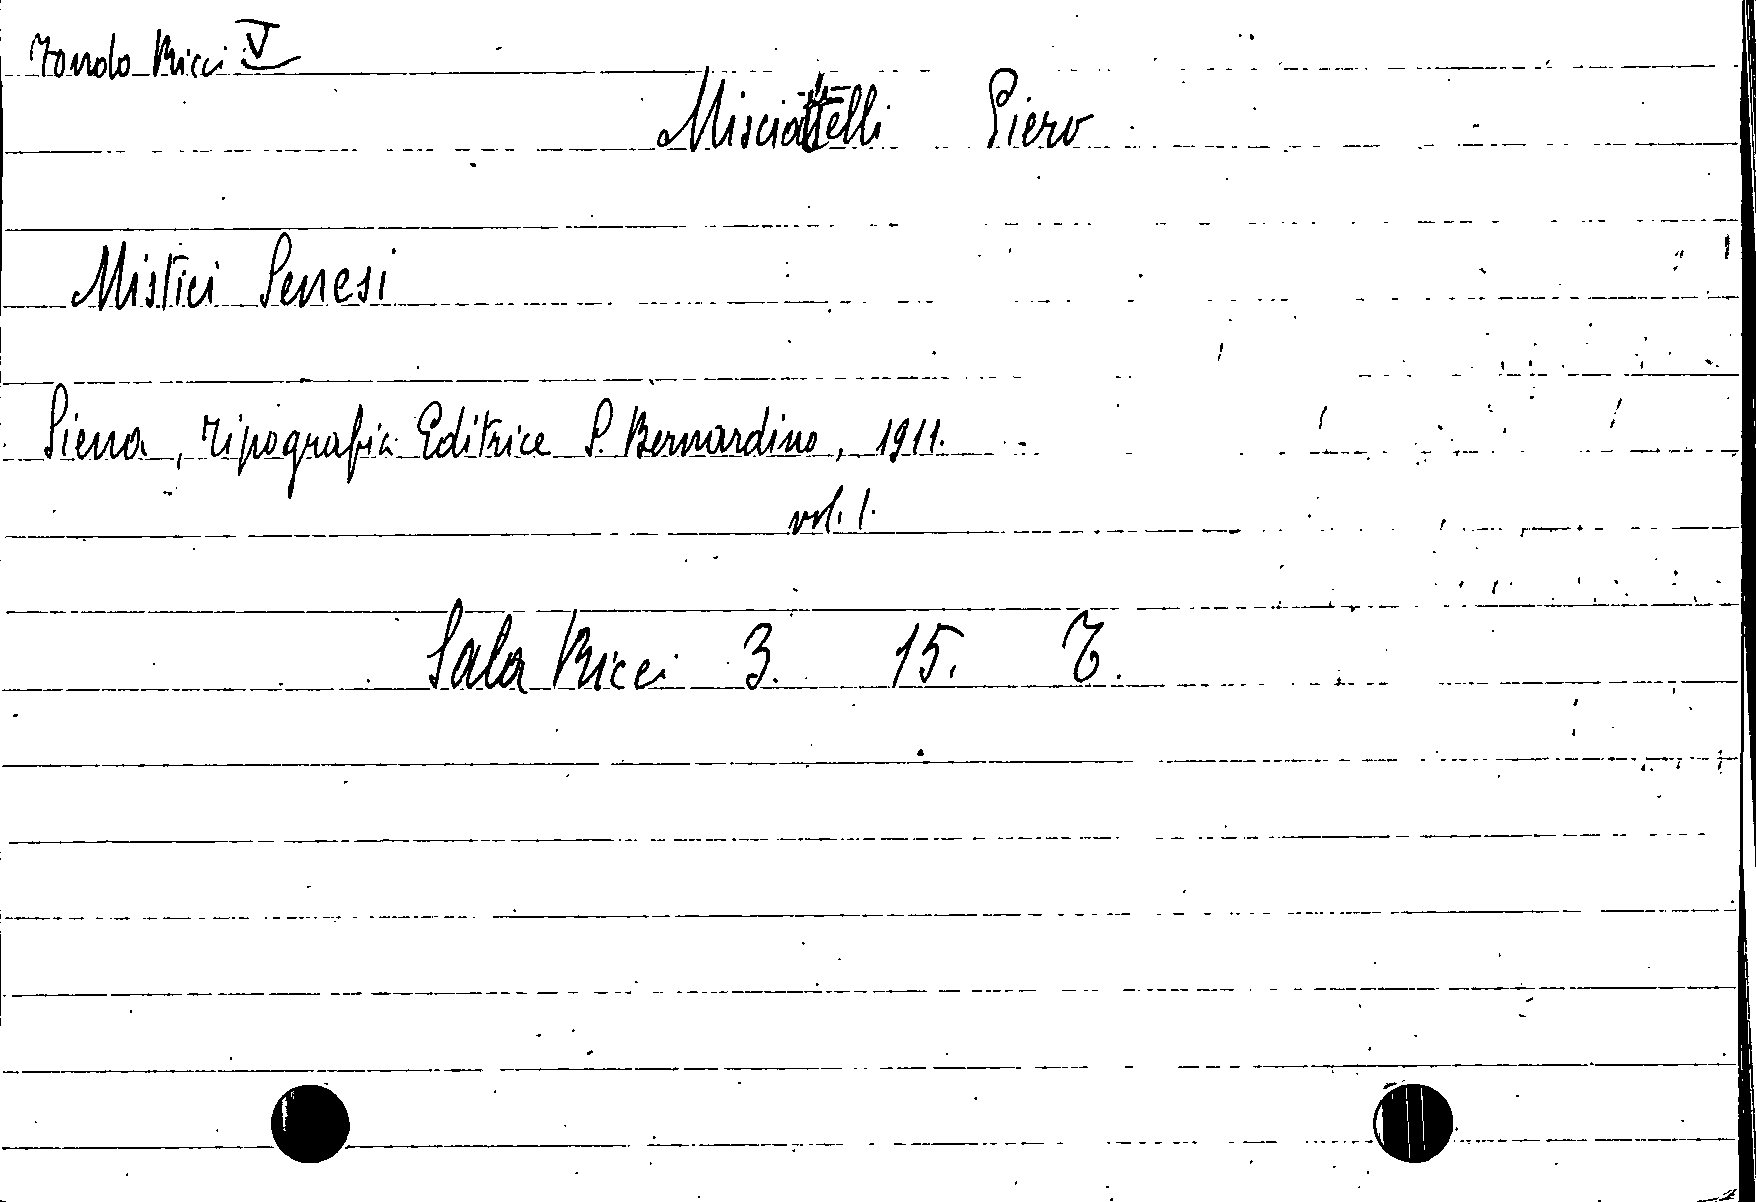 Fondo Ricci V
Misciattelli Piero
Mistici Senesi
Siena, Tipografia Editrice S. Bernardino, 1911.
vol. 1.
Sala Ricci 3. 15. 7.